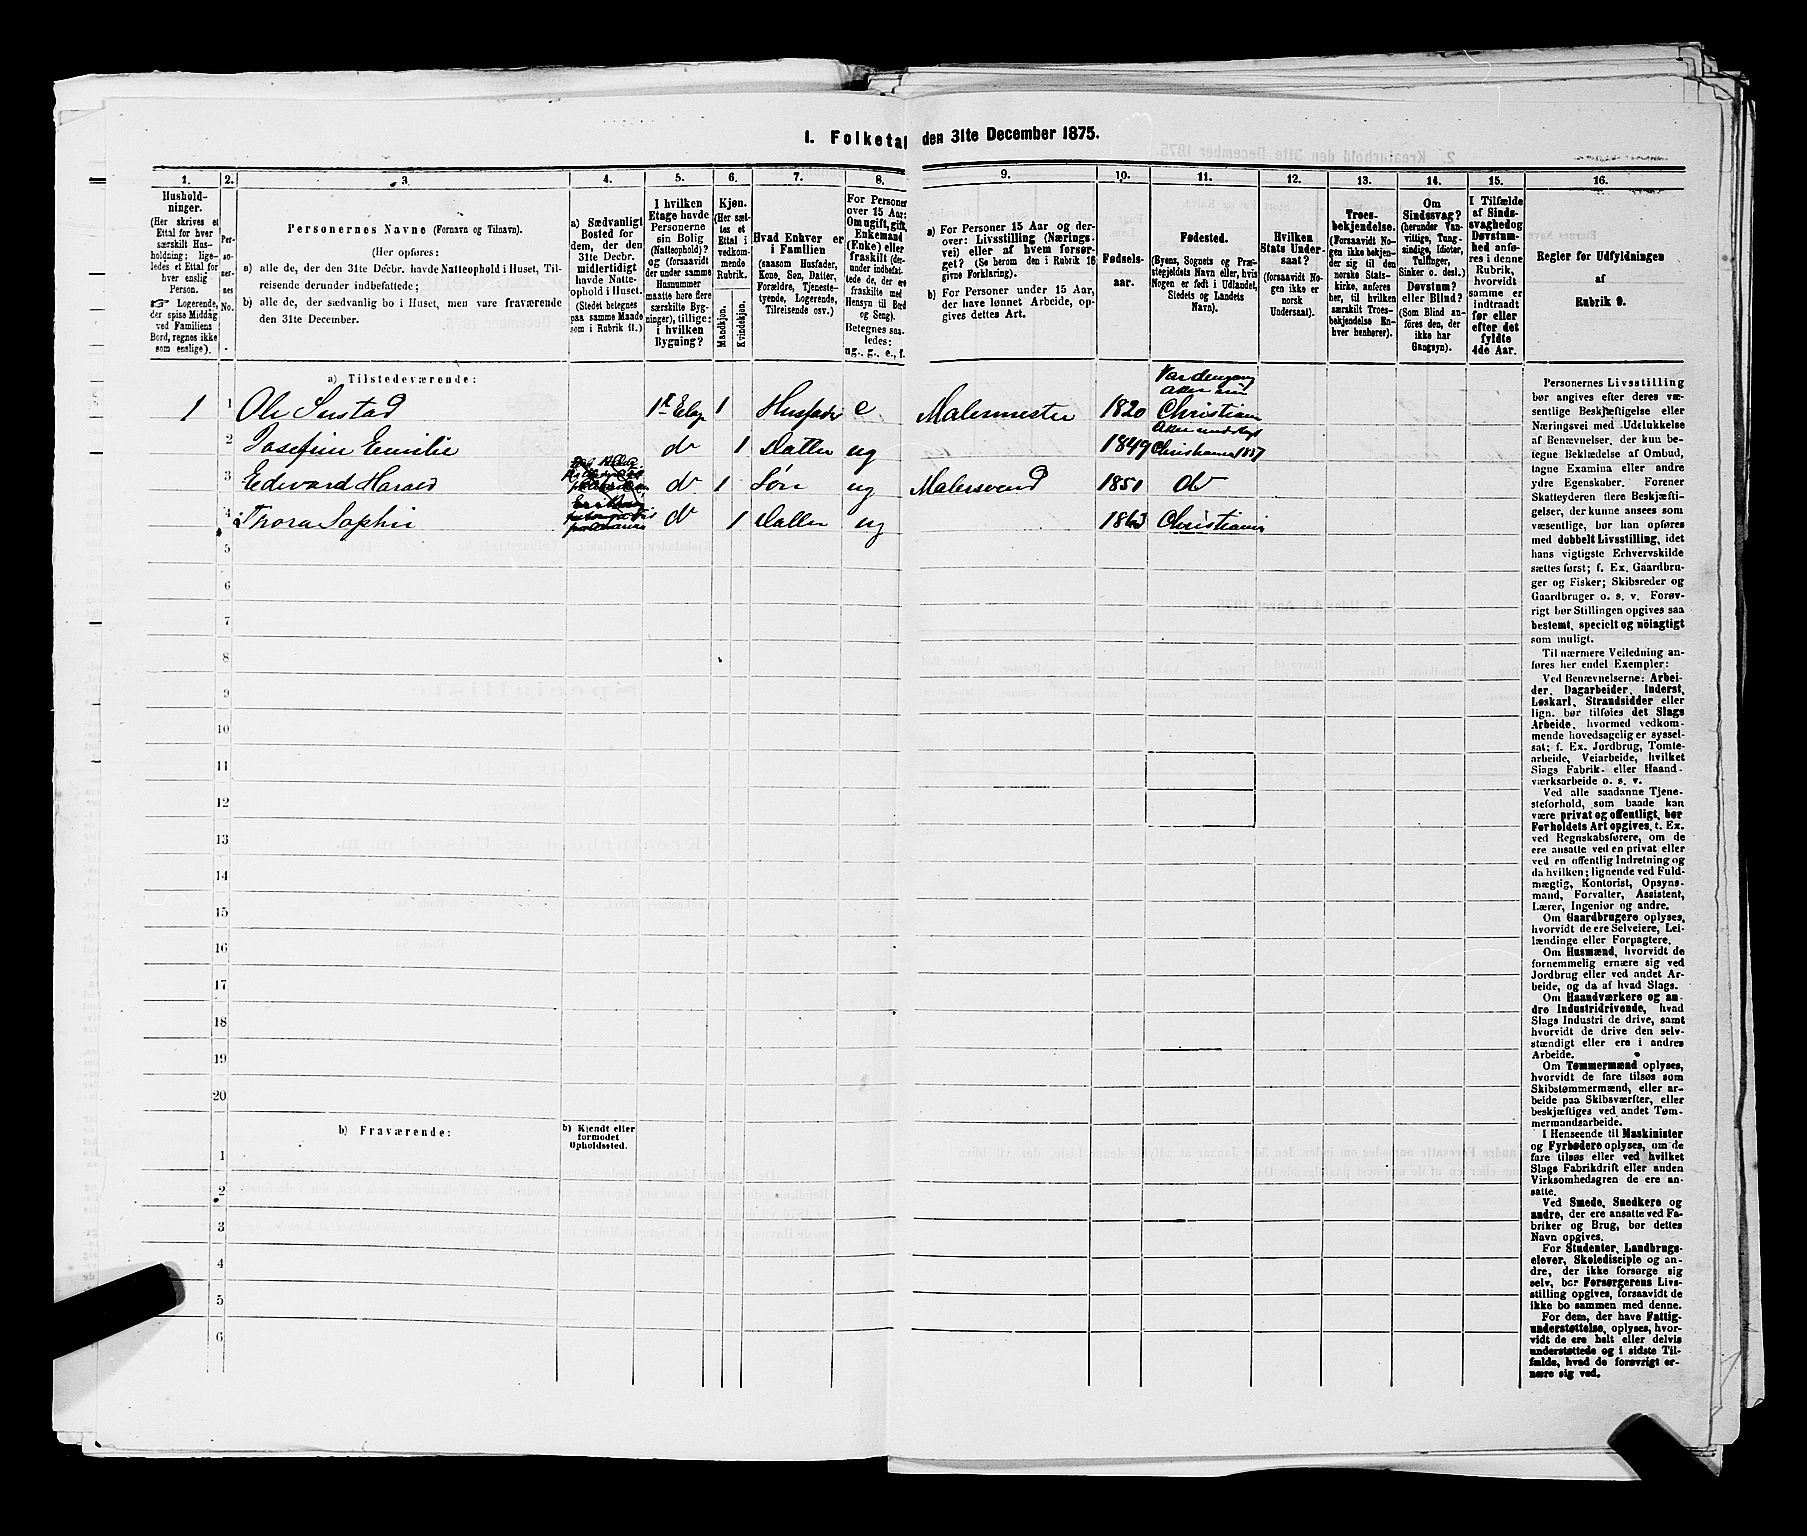 I. Folketal den 31te December 1875.
1. 2. 3. 4. 5. 6. 7. 8. 9. 10. 11. 12. 13. 14. 15. 16.
Hushold-
ninger.
(Her skrives et
Ettal for hver
særskilt Hus-
holdning; lige-
ledes et Ettal for
hver enslig
Person.
☞ Logerende,
der spise Middag
ved Familiens
Bord, regnes ikke
som enslige).
Per-
so-
ner-
nes
No.
Personernes Navne (Fornavn og Tilnavn).
(Her opføres:
a) alle de, der den 31te Decbr. havde Natteophold i Huset, Til-
reisende derunder indbefattede;
b) alle de, der sædvanlig bo i Huset, men vare fraværende
den 31te December.
a) Sædvanligt
Bosted for
dem, der den
31te Decbr.
midlertidigt
havde Natte-
ophold i Huset.
(Stedet betegnes
paa samme Maade
som i Rubrik 11.)
I hvilken
Etage havde
Personerne
sin Bolig
(Natteophold)?
og (forsaavidt
der under samme
Husnummer
maatte høre flere
særskilte Byg-
ninger), tillige:
i hvilken
Bygning?
Kjøn.
(Her sæt-
tes et
Ettal i
vedkom-
mende
Rubrik.
Mandkjøn.
Kvindekjøn.
Hvad Enhver er
i Familien
(saasom Husfader,
Kone, Søn, Datter,
Forældre, Tjeneste-
tyende, Logerende,
Tilreisende osv.)
For Personer
over 15 Aar:
Om ugift, gift,
Enkemand
(Enke) eller
fraskilt (der-
under indbefat-
tede de, der ere
fraskilte med
Hensyn til Bord
og Seng).
Betegnes saa-
ledes:
ug., g., e., f.
a) For Personer 15 Aar og der-
over: Livsstilling (Nærings-
vei) eller af hvem forsør-
get? (Se herom den i Rubrik 16
givne Forklaring).
b) For Personer under 15 Aar,
der have lønnet Arbeide, op-
gives dettes Art.
Fødsels-
aar.
Fødested.
(Byens, Sognets og Præ-
stegjeldets Navn eller, hvis
Nogen er født i Udlandet,
Stedets og Landets
Navn).
Hvilken
Stats Under-
saat?
(forsaavidt No-
gen ikke er
norsk
Undersaat).
Troes-
bekjendelse.
(Forsaavidt No-
gen ikke bekjen-
der sig til den
norske Stats-
kirke, anføres
her, til hvilken
særskilt Troes-
bekjendelse En-
hver henhører).
Om
Sindssvag?
(herunder Van-
vittige, Tung-
sindige, Idioter,
Tullinger,
Sinker o. desl.)
Døvstum?
eller Blind?
(Som Blind an-
føres den, der
ikke har
Gangsyn).
I Tilfælde
af Sinds-
svaghed og
Døvstum-
hed anfø-
res i denne
Rubrik,
hvorvidt
samme er
indtraadt
før eller
efter det
fyldte
4de Aar.
Regler for Udfyldningen
af
Rubrik 9.
a) Tilstedeværende:
1 1 Ole Sustad 1 Etag 1 Husfader e Malermester 1820 Christiania
2 Josefine Emilie do 1 Datter ug 1849 Christiania 1857
3 Edevard Harald do 1 Søn ug Malersvend 1851 do
4 Thora Sophie do 1 Datter ug 1863 Christiania
5
6
7
8
9
10
11
12
13
14
15
16
17
18
19
20
b) Fraværende:
b) Kjendt eller
formodet
Opholdssted.
1
2
3
4
5
6
Personernes Livsstilling
bør angives efter deres væ-
sentlige Beskjæftigelse eller
Næringsvei med Udelukkelse
af Benævnelser, der kun be-
tegne Beklædelse af Ombud,
tagne Examina eller andre
ydre Egenskaber. Forener
Skatteyderen flere Beskjæfti-
gelser, der kunne ansees som
væsentlige, bør han opføres
med dobbelt Livsstilling, idet
hans vigtigste Erhvervskilde
sættes først; f. Ex. Gaardbru-
ger og Fisker; Skibsreder og
Gaardbruger o. s. v. Forøv-
rigt bør Stillingen opgives saa
bestemt, specielt og nöiagtigt
som muligt.
Til nærmere Veiledning an-
føres her endel Exempler:
Ved Benævnelserne: Arbei-
der, Dagarbeider, Inderst,
Løskarl, Strandsidder eller
lign. bør tilføies det Slags
Arbeide, hvormed vedkom-
mende hovedsagelig er syssel-
sat; f. Ex. Jordbrug, Tomte-
arbeide, Veiarbeide, hvilket
Slags Fabrik- eller Haand-
værksarbeide o. s. v.
Ved alle saadanne Tjene-
steforhold, som baade kan
være privat og offentligt, bør
Forholdets Art opgives, t. Ex.
ved Regnskabsførere, om de
ere ansatte ved en privat eller
ved en offentlig Indretning og
da hvilken; lignende ved Fuld-
mægtig, Kontorist, Opsyns-
mand, Forvalter, Assistent,
Lærer, Ingeniør og andre.
Om Gaardbrugere oplyses,
hvorvidt de ere Selveiere, Lei-
lændinge eller Forpagtere.
Om Husmænd, hvorvidt de
fornemmelig ernære sig ved
Jordbrug eller ved andet Ar-
beide, og da af hvad Slags.
Om Haandværkere og an-
dre Industridrivende, hvad
Slags Industri de drive, samt
hvorvidt de drive den selv-
stændigt eller ere i andres
Arbeide.
Om Tømmermænd oplyses,
hvorvidt de fare tilsøs som
Skibstømmermænd, eller ar-
beide paa Skibsværfter, eller
beskjæftiges ved andet Tøm-
mermandsarbeide.
I Henseende til Maskinister
og Fyrbødere oplyses, om de
fare tilsøs eller ved hvilket
Slags Fabrikdrift eller anden
Virksomhedsgren de ere an-
satte.
Ved Smede, Snedkere og
andre, der ere ansatte ved Fa-
briker og Brug, bør dettes
Navn opgives.
For Studenter, Landbrugs-
elever, Skoledisciple og an-
dre, der ikke forsørge sig
selv, bør Forsørgerens Livs-
stilling opgives, forsaavidt de
ikke bo sammen med denne.
For dem, der have Fattig-
understøttelse, oplyses, hvor-
vidt de ere helt eller delvis
understøttede og i sidste Til-
fælde, hvad de forøvrigt er-
nære sig ved.